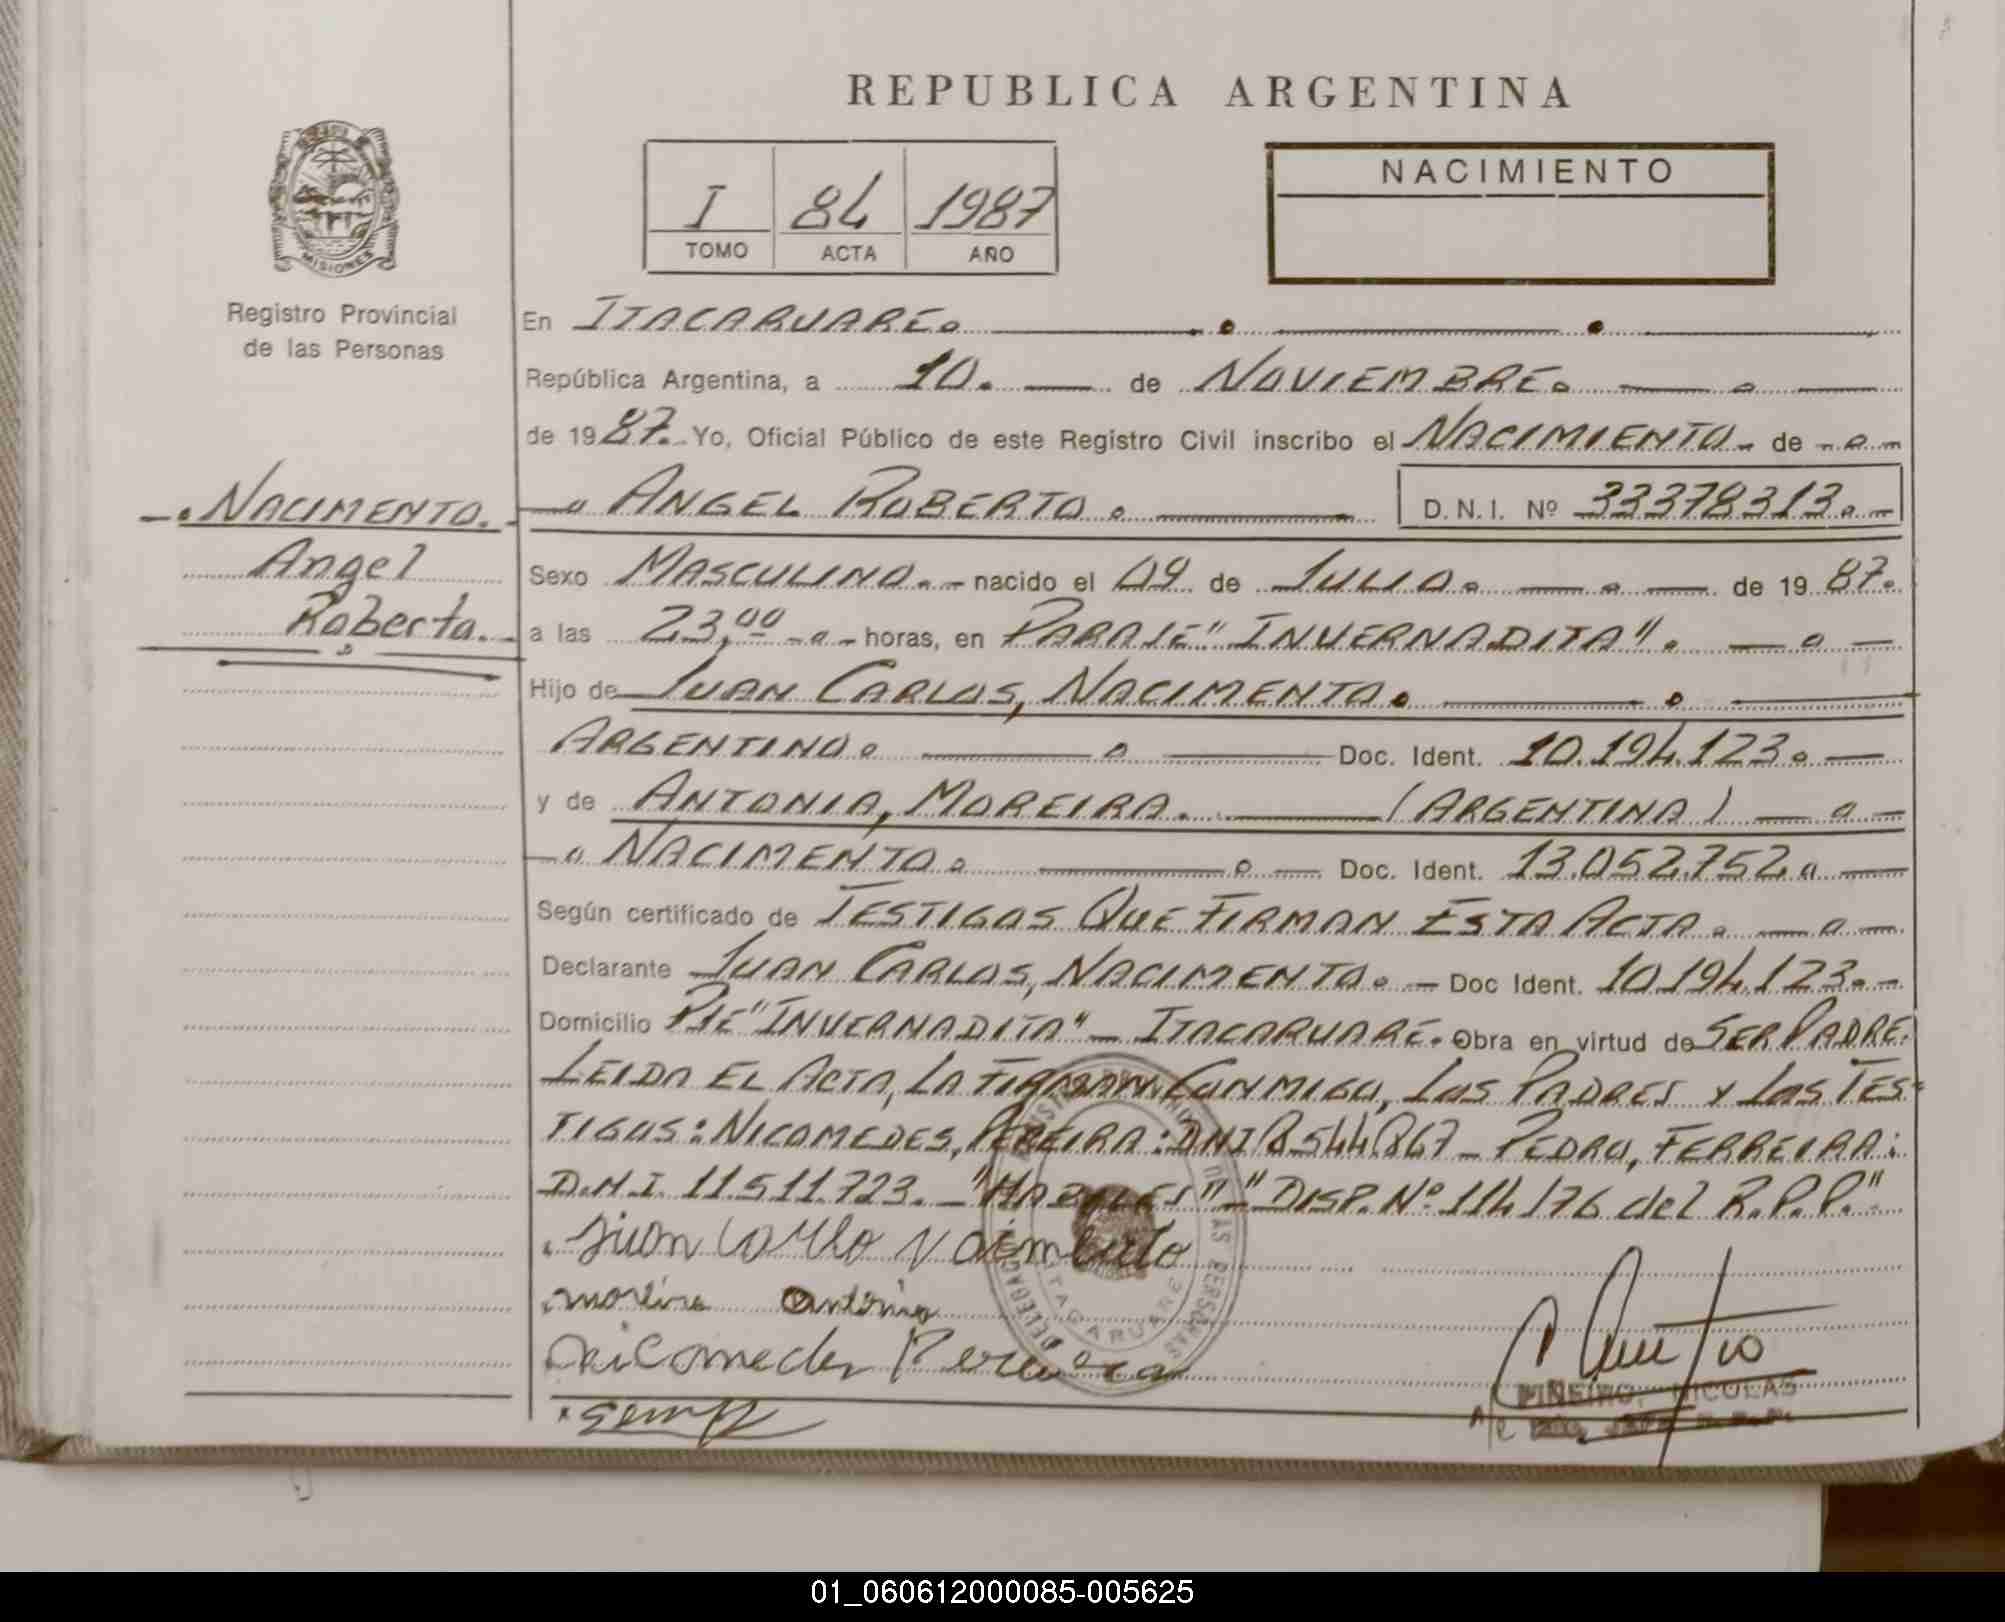 REPUBLICA ARGENTINA
MISIONES
Registro Provincial
de las Personas
I 84 1987
TOMO ACTA AÑO
NACIMIENTO
En ITACARUARÉ.
República Argentina, a 10. de NOVIEMBRE.
de 1987. Yo, Oficial Público de este Registro Civil inscribo el NACIMIENTO de
ANGEL ROBERTO D.N.I. Nº 33378313.
NACIMENTO.
Angel
Roberto.
Sexo MASCULINO. nacido el 09 de JULIO. de 1987.
a las 23,00 horas, en PARAJE "INVERNADITA".
Hijo de JUAN CARLOS, NACIMENTO.
ARGENTINO. Doc. Ident. 10.194.123.
y de ANTONIA, MOREIRA. (ARGENTINA)
NACIMENTO. Doc. Ident. 13.052.752.
Según certificado de TESTIGOS QUE FIRMAN ESTA ACTA.
Declarante JUAN CARLOS, NACIMENTO. Doc Ident. 10.194.123.
Domicilio PJE "INVERNADITA" - ITACARUARÉ. Obra en virtud de SER PADRE.
LEIDA EL ACTA, LA FIRMAN CONMIGO, LOS PADRES Y LOS TES-
TIGOS: NICOMEDES, PEREIRA: DNI 8.544.867 - PEDRO, FERREIRA:
D.N.I. 11.511.723. - DISP. Nº 114/76 del R.P.P."
Juan Carlo
moreira antonia
nicomedes Pereira
PIÑEIRO, NICOLAS
01_060612000085-005625